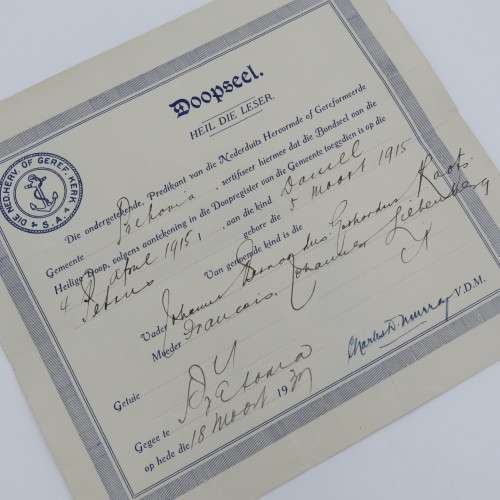 Doopseel.
HEIL DIE LESER.
DIE NED. HERV. OF GEREF. KERK. S.A.
Die ondergetekende, Predikant van die Nederduits Hervormde of Gereformeerde
Gemeente Pretoria, sertifiseer hiermee dat die Bondseel van die
Heilige Doop, volgens aantekening in die Doopregister van die Gemeente toegedien is op die
4 April 1915, aan die kind Daniel
Petrus gebore die 5 Maart 1915
Van genoemde kind is die
Vader Johannes Gerhardus Koots
Moeder Francois Johanna Liebenberg
Getuie
Gegee te Pretoria
op hede die 18 Maart 1937
Charles D. Murray V.D.M.